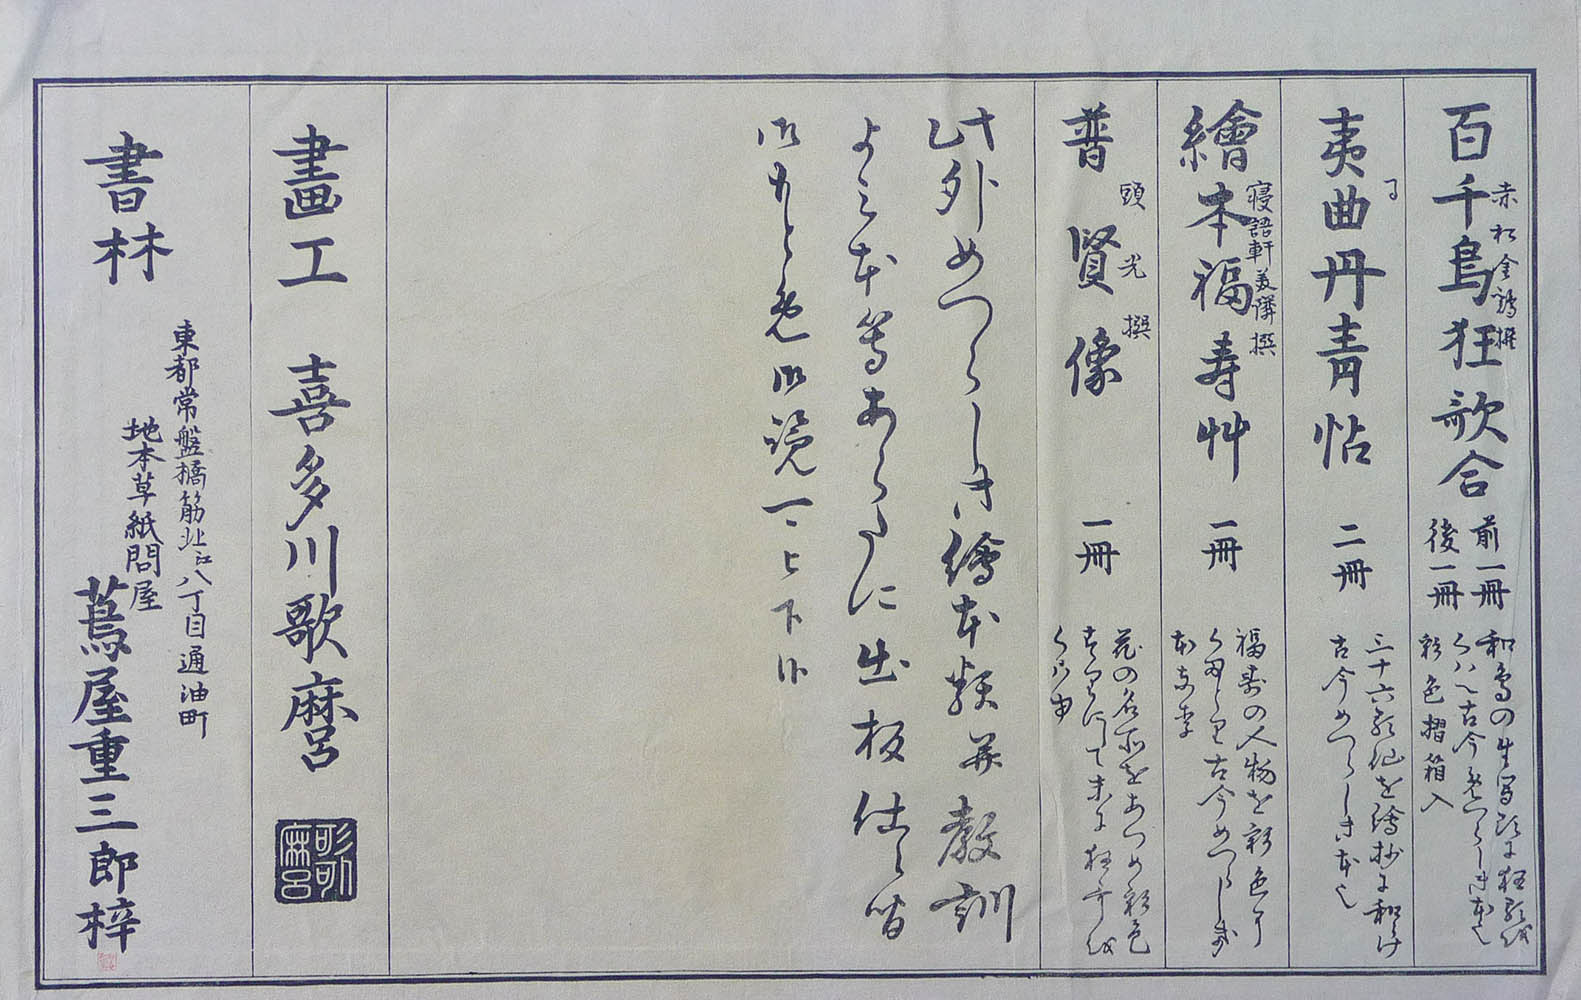 百千鳥狂歌合
赤松金鶏撰
前一冊
後一冊
和鳥の生写しに狂歌を
くはへ古今めつらしき本也
彩色摺箱入
夷曲丹青帖
二冊
三十六歌仙を繪抄に和らけ
古今めつらしき本也
繪本福寿艸
寝語軒美隣撰
一冊
福寿の人物を彩色
古今めつらしき
普賢像
頭光撰
一冊
花の名所をあつめ彩色
にて末に狂哥を
くはへ申
此外めつらしき繪本類并教訓
よみ本等あらたに出板仕候間
御もとめ御覧可被下候
畫工 喜多川歌麿
歌麻呂
書林
東都常盤橋筋北江八丁目通油町
地本草紙問屋
蔦屋重三郎梓